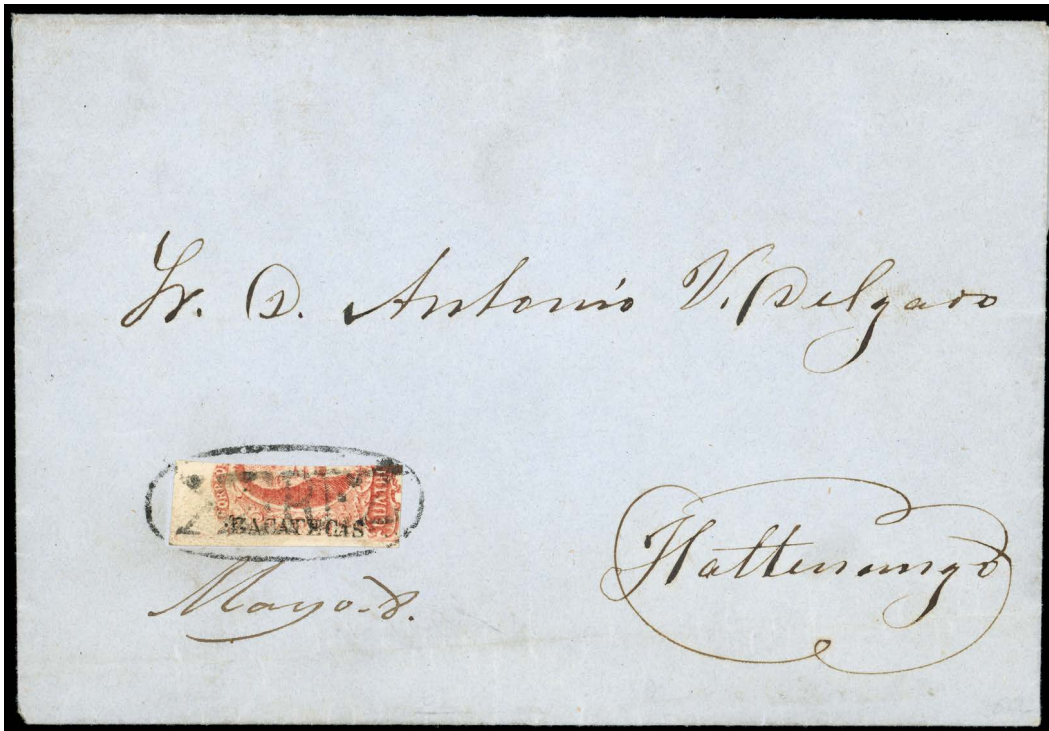 Sr. D. Antonio V. Delgado
ZACATECAS
Mayo. 8.
Tlaltenango